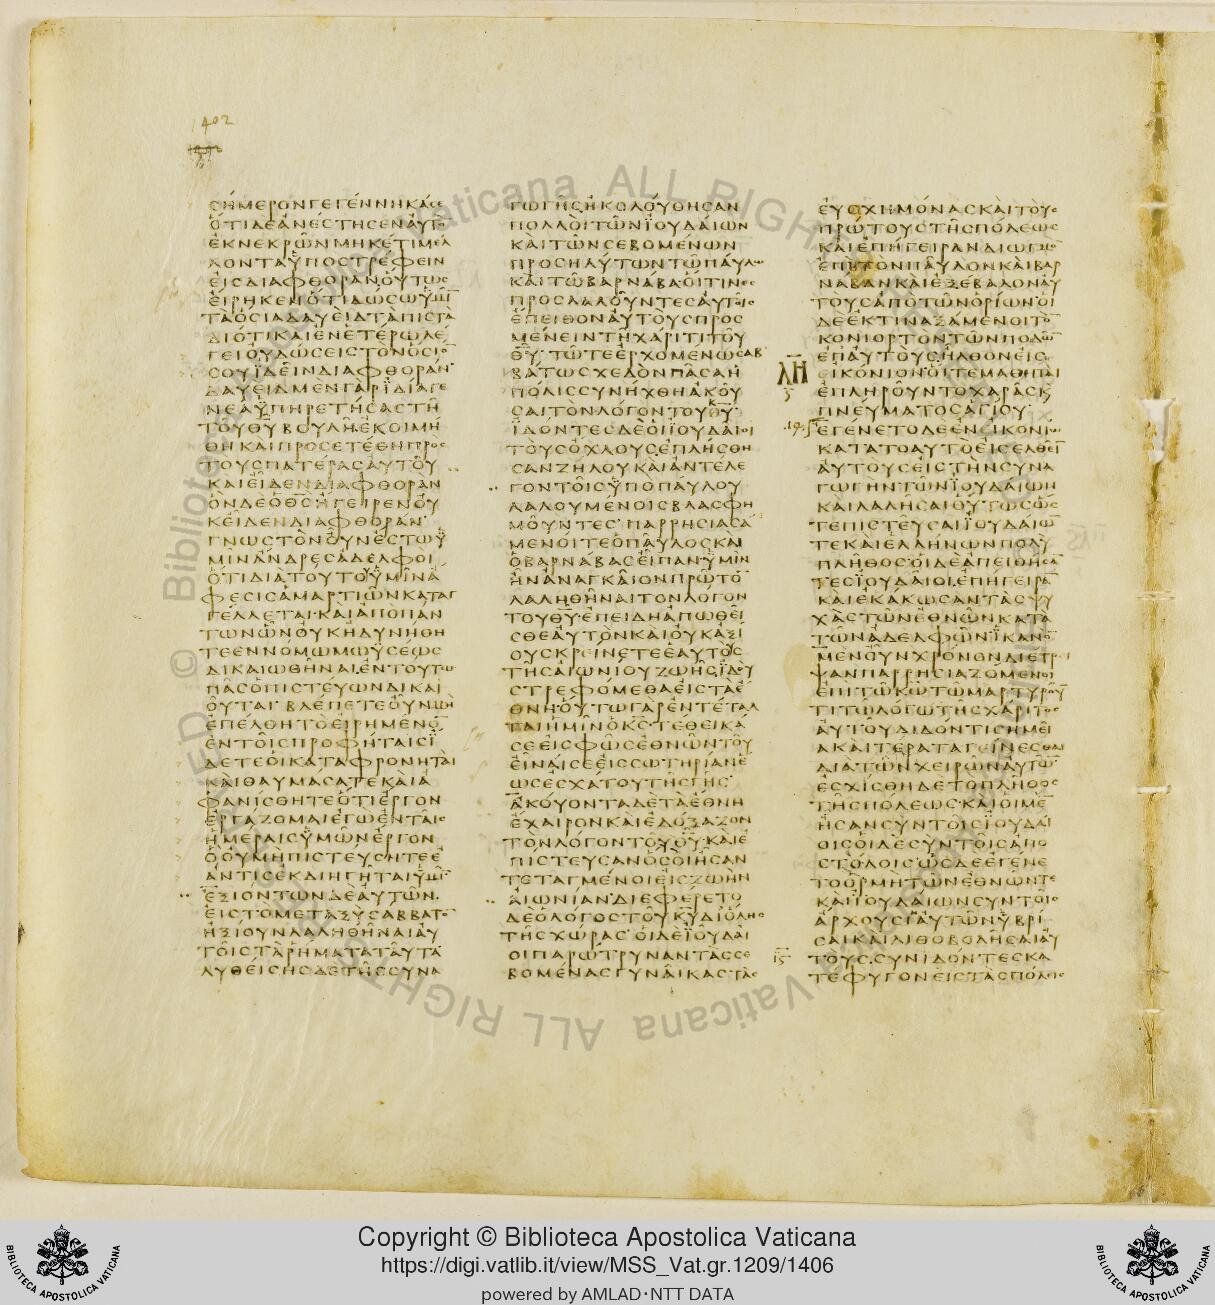 1402
ϹΗΜΕΡΟΝΓΕΓΕΝΝΗΚΑϹΕ
ΟΤΙΔΕΑΝΕϹΤΗϹΕΝΑΥΤΟ̅
ΕΚΝΕΚΡΩΝΜΗΚΕΤΙΜΕΛ
ΛΟΝΤΑΫΠΟϹΤΡΕΦΕΙΝ
ΕΙϹΔΙΑΦΘΟΡΑΝΟΥΤΩϹ
ΕΙΡΗΚΕΝΟΤΙΔΩϹΩΫΜΙ̅
ΤΑΟϹΙΑΔΑΥΕΙΔΤΑΠΙϹΤΑ
ΔΙΟΤΙΚΑΙΕΝΕΤΕΡΩΛΕ
ΓΕΙΟΥΔΩϹΕΙϹΤΟΝΟϹΙΟ̅
ϹΟΥΪΔΕΙΝΔΙΑΦΘΟΡΑΝ
ΔΑΥΕΙΔΜΕΝΓΑΡΪΔΙΑΓΕ
ΝΕΑΫΠΗΡΕΤΗϹΑϹΤΗ
ΤΟΥΘΥ̅ΒΟΥΛΗΕΚΟΙΜΗ
ΘΗΚΑΙΠΡΟϹΕΤΕΘΗΠΡΟϹ
ΤΟΥϹΠΑΤΕΡΑϹΑΥΤΟΥ
ΚΑΙΕΙΔΕΝΔΙΑΦΘΟΡΑΝ
ΟΝΔΕΟΘϹ̅ΗΓΕΙΡΕΝΟΥ
ΚΕΙΔΕΝΔΙΑΦΘΟΡΑΝ
ΓΝΩϹΤΟΝΟΥΝΕϹΤΩΫ
ΜΙΝΑΝΔΡΕϹΑΔΕΛΦΟΙ
ΟΤΙΔΙΑΤΟΥΤΟΫΜΙΝΑ
ΦΕϹΙϹΑΜΑΡΤΙΩΝΚΑΤΑΓ
ΓΕΛΛΕΤΑΙ·ΚΑΙΑΠΟΠΑΝ
ΤΩΝΩΝΟΥΚΗΔΥΝΗΘΗ
ΤΕΕΝΝΟΜΩΜΩΥϹΕΩϹ
ΔΙΚΑΙΩΘΗΝΑΙ·ΕΝΤΟΥΤΩ
ΠΑϹΟΠΙϹΤΕΥΩΝΔΙΚΑΙ
ΟΥΤΑΙ·ΒΛΕΠΕΤΕΟΥΝΜΗ
ΕΠΕΛΘΗΤΟΕΙΡΗΜΕΝΟ̅
ΕΝΤΟΙϹΠΡΟΦΗΤΑΙϹΪ
ΔΕΤΕΟΙΚΑΤΑΦΡΟΝΗΤΑΙ
ΚΑΙΘΑΥΜΑϹΑΤΕΚΑΙΑ
ΦΑΝΙϹΘΗΤΕΟΤΙΕΡΓΟΝ
ΕΡΓΑΖΟΜΑΙΕΓΩΕΝΤΑΙϹ
ΗΜΕΡΑΙϹΫΜΩΝΕΡΓΟΝ
ΟΟΥΜΗΠΙϹΤΕΥϹΗΤΕΕ
ΑΝΤΙϹΕΚΔΙΗΓΗΤΑΙΫΜΙ̅
ΕΞΙΟΝΤΩΝΔΕΑΥΤΩΝ·
ΕΙϹΤΟΜΕΤΑΞΥϹΑΒΒΑΤΟ̅
ΗΞΙΟΥΝΛΑΛΗΘΗΝΑΙΑΥ
ΤΟΙϹΤΑΡΗΜΑΤΑΤΑΥΤΑ
ΛΥΘΕΙϹΗϹΔΕΤΗϹϹΥΝΑ
ΓΩΓΗϹΗΚΟΛΟΥΘΗϹΑΝ
ΠΟΛΛΟΙΤΩΝΪΟΥΔΑΙΩΝ
ΚΑΙΤΩΝϹΕΒΟΜΕΝΩΝ
ΠΡΟϹΗΛΥΤΩΝΤΩΠΑΥΛΩ
ΚΑΙΤΩΒΑΡΝΑΒΑ·ΟΙΤΙΝΕϹ
ΠΡΟϹΛΑΛΟΥΝΤΕϹΑΥΤΟΙϹ
ΕΠΕΙΘΟΝΑΥΤΟΥϹΠΡΟϹ
ΜΕΝΕΙΝΤΗΧΑΡΙΤΙΤΟΥ
ΘΥ̅·ΤΩΤΕΕΡΧΟΜΕΝΩϹΑΒ
ΒΑΤΩϹΧΕΔΟΝΠΑϹΑΗ
ΠΟΛΙϹϹΥΝΗΧΘΗΑΚΟΥ
ϹΑΙΤΟΝΛΟΓΟΝΤΟΥΘΥ̅·
ΪΔΟΝΤΕϹΔΕΟΙΪΟΥΔΑΙΟΙ
ΤΟΥϹΟΧΛΟΥϹΕΠΛΗϹΘΗ
ϹΑΝΖΗΛΟΥΚΑΙΑΝΤΕΛΕ
ΓΟΝΤΟΙϹΫΠΟΠΑΥΛΟΥ
ΛΑΛΟΥΜΕΝΟΙϹΒΛΑϹΦΗ
ΜΟΥΝΤΕϹ·ΠΑΡΡΗϹΙΑϹΑ
ΜΕΝΟΙΤΕΟΠΑΥΛΟϹΚΑΙ
ΟΒΑΡΝΑΒΑϹΕΙΠΑΝΫΜΙΝ
ΗΝΑΝΑΓΚΑΙΟΝΠΡΩΤΟ̅
ΛΑΛΗΘΗΝΑΙΤΟΝΛΟΓΟΝ
ΤΟΥΘΥ̅·ΕΠΕΙΔΗΑΠΩΘΕΙ
ϹΘΕΑΥΤΟΝΚΑΙΟΥΚΑΞΙ
ΟΥϹΚΡΕΙΝΕΤΕΕΑΥΤΟΥϹ
ΤΗϹΑΙΩΝΙΟΥΖΩΗϹΪΔΟΥ
ϹΤΡΕΦΟΜΕΘΑΕΙϹΤΑΕ
ΘΝΗ·ΟΥΤΩΓΑΡΕΝΤΕΤΑΛ
ΤΑΙΗΜΙΝΟΚϹ̅·ΤΕΘΕΙΚΑ
ϹΕΕΙϹΦΩϹΕΘΝΩΝΤΟΥ
ΕΙΝΑΙϹΕΕΙϹϹΩΤΗΡΙΑΝΕ
ΩϹΕϹΧΑΤΟΥΤΗϹΓΗϹ·
ΑΚΟΥΟΝΤΑΔΕΤΑΕΘΝΗ
ΕΧΑΙΡΟΝΚΑΙΕΔΟΞΑΖΟΝ
ΤΟΝΛΟΓΟΝΤΟΥΘΥ̅·ΚΑΙΕ
ΠΙϹΤΕΥϹΑΝΟϹΟΙΗϹΑΝ
ΤΕΤΑΓΜΕΝΟΙΕΙϹΖΩΗΝ
ΑΙΩΝΙΑΝΔΙΕΦΕΡΕΤΟ
ΔΕΟΛΟΓΟϹΤΟΥΚΥ̅ΔΙΟΛΗϹ
ΤΗϹΧΩΡΑϹ·ΟΙΔΕΪΟΥΔΑΙ
ΟΙΠΑΡΩΤΡΥΝΑΝΤΑϹϹΕ
ΒΟΜΕΝΑϹΓΥΝΑΙΚΑϹΤΑϹ
ΕΥϹΧΗΜΟΝΑϹΚΑΙΤΟΥϹ
ΠΡΩΤΟΥϹΤΗϹΠΟΛΕΩϹ
ΚΑΙΕΠΗΓΕΙΡΑΝΔΙΩΓΜΟ̅
ΕΠΙΤΟΝΠΑΥΛΟΝΚΑΙΒΑΡ
ΝΑΒΑΝΚΑΙΕΞΕΒΑΛΟΝΑΥ
ΤΟΥϹΑΠΟΤΩΝΟΡΙΩΝ·ΟΙ
ΔΕΕΚΤΙΝΑΞΑΜΕΝΟΙΤΟ̅
ΚΟΝΙΟΡΤΟΝΤΩΝΠΟΔΩ̅
ΕΠΑΥΤΟΥϹΗΛΘΟΝΕΙϹ
ΛΗ
ΕΙΚΟΝΙΟΝ·ΟΙΤΕΜΑΘΗΤΑΙ
ΕΠΛΗΡΟΥΝΤΟΧΑΡΑϹΚ
ΠΝΕΥΜΑΤΟϹΑΓΙΟΥ·
ΕΓΕΝΕΤΟΔΕΕΝΕΙΚΟΝΙΩ
ΚΑΤΑΤΟΑΥΤΟΕΙϹΕΛΘΕΙ̅
ΑΥΤΟΥϹΕΙϹΤΗΝϹΥΝΑ
ΓΩΓΗΝΤΩΝΪΟΥΔΑΙΩΝ
ΚΑΙΛΑΛΗϹΑΙΟΥΤΩϹΩϹ
ΤΕΠΙϹΤΕΥϹΑΙΪΟΥΔΑΙΩ̅
ΤΕΚΑΙΕΛΛΗΝΩΝΠΟΛΥ
ΠΛΗΘΟϹΟΙΔΕΑΠΕΙΘΗϹΑ̅
ΤΕϹΪΟΥΔΑΙΟΙ·ΕΠΗΓΕΙΡΑ̅
ΚΑΙΕΚΑΚΩϹΑΝΤΑϹΨΥ
ΧΑϹΤΩΝΕΘΝΩΝΚΑΤΑ
ΤΩΝΑΔΕΛΦΩΝΪΚΑΝΟ̅
ΜΕΝΟΥΝΧΡΟΝΟΝΔΙΕΤΡΙ
ΨΑΝΠΑΡΡΗϹΙΑΖΟΜΕΝΟΙ
ΕΠΙΤΩΚΩ̅ΤΩΜΑΡΤΥΡΟΥ̅
ΤΙΤΩΛΟΓΩΤΗϹΧΑΡΙΤΟϹ
ΑΥΤΟΥΔΙΔΟΝΤΙϹΗΜΕΙ
ΑΚΑΙΤΕΡΑΤΑΓΕΙΝΕϹΘΑΙ
ΔΙΑΤΩΝΧΕΙΡΩΝΑΥΤΩ̅
ΕϹΧΙϹΘΗΔΕΤΟΠΛΗΘΟϹ
ΤΗϹΠΟΛΕΩϹ·ΚΑΙΟΙΜΕ̅
ΗϹΑΝϹΥΝΤΟΙϹΪΟΥΔΑΙ
ΟΙϹΟΙΔΕϹΥΝΤΟΙϹΑΠΟ
ϹΤΟΛΟΙϹ·ΩϹΔΕΕΓΕΝΕ
ΤΟΟΡΜΗΤΩΝΕΘΝΩΝΤΕ
ΚΑΙΪΟΥΔΑΙΩΝϹΥΝΤΟΙϹ
ΑΡΧΟΥϹΙΑΥΤΩΝΫΒΡΙ
ϹΑΙΚΑΙΛΙΘΟΒΟΛΗϹΑΙΑΥ
ΤΟΥϹ·ϹΥΝΙΔΟΝΤΕϹΚΑ
ΤΕΦΥΓΟΝΕΙϹΤΑϹΠΟΛΕΙϹ
Copyright © Biblioteca Apostolica Vaticana
https://digi.vatlib.it/view/MSS_Vat.gr.1209/1406
powered by AMLAD·NTT DATA
BIBLIOTECA APOSTOLICA VATICANA
BIBLIOTECA APOSTOLICA VATICANA